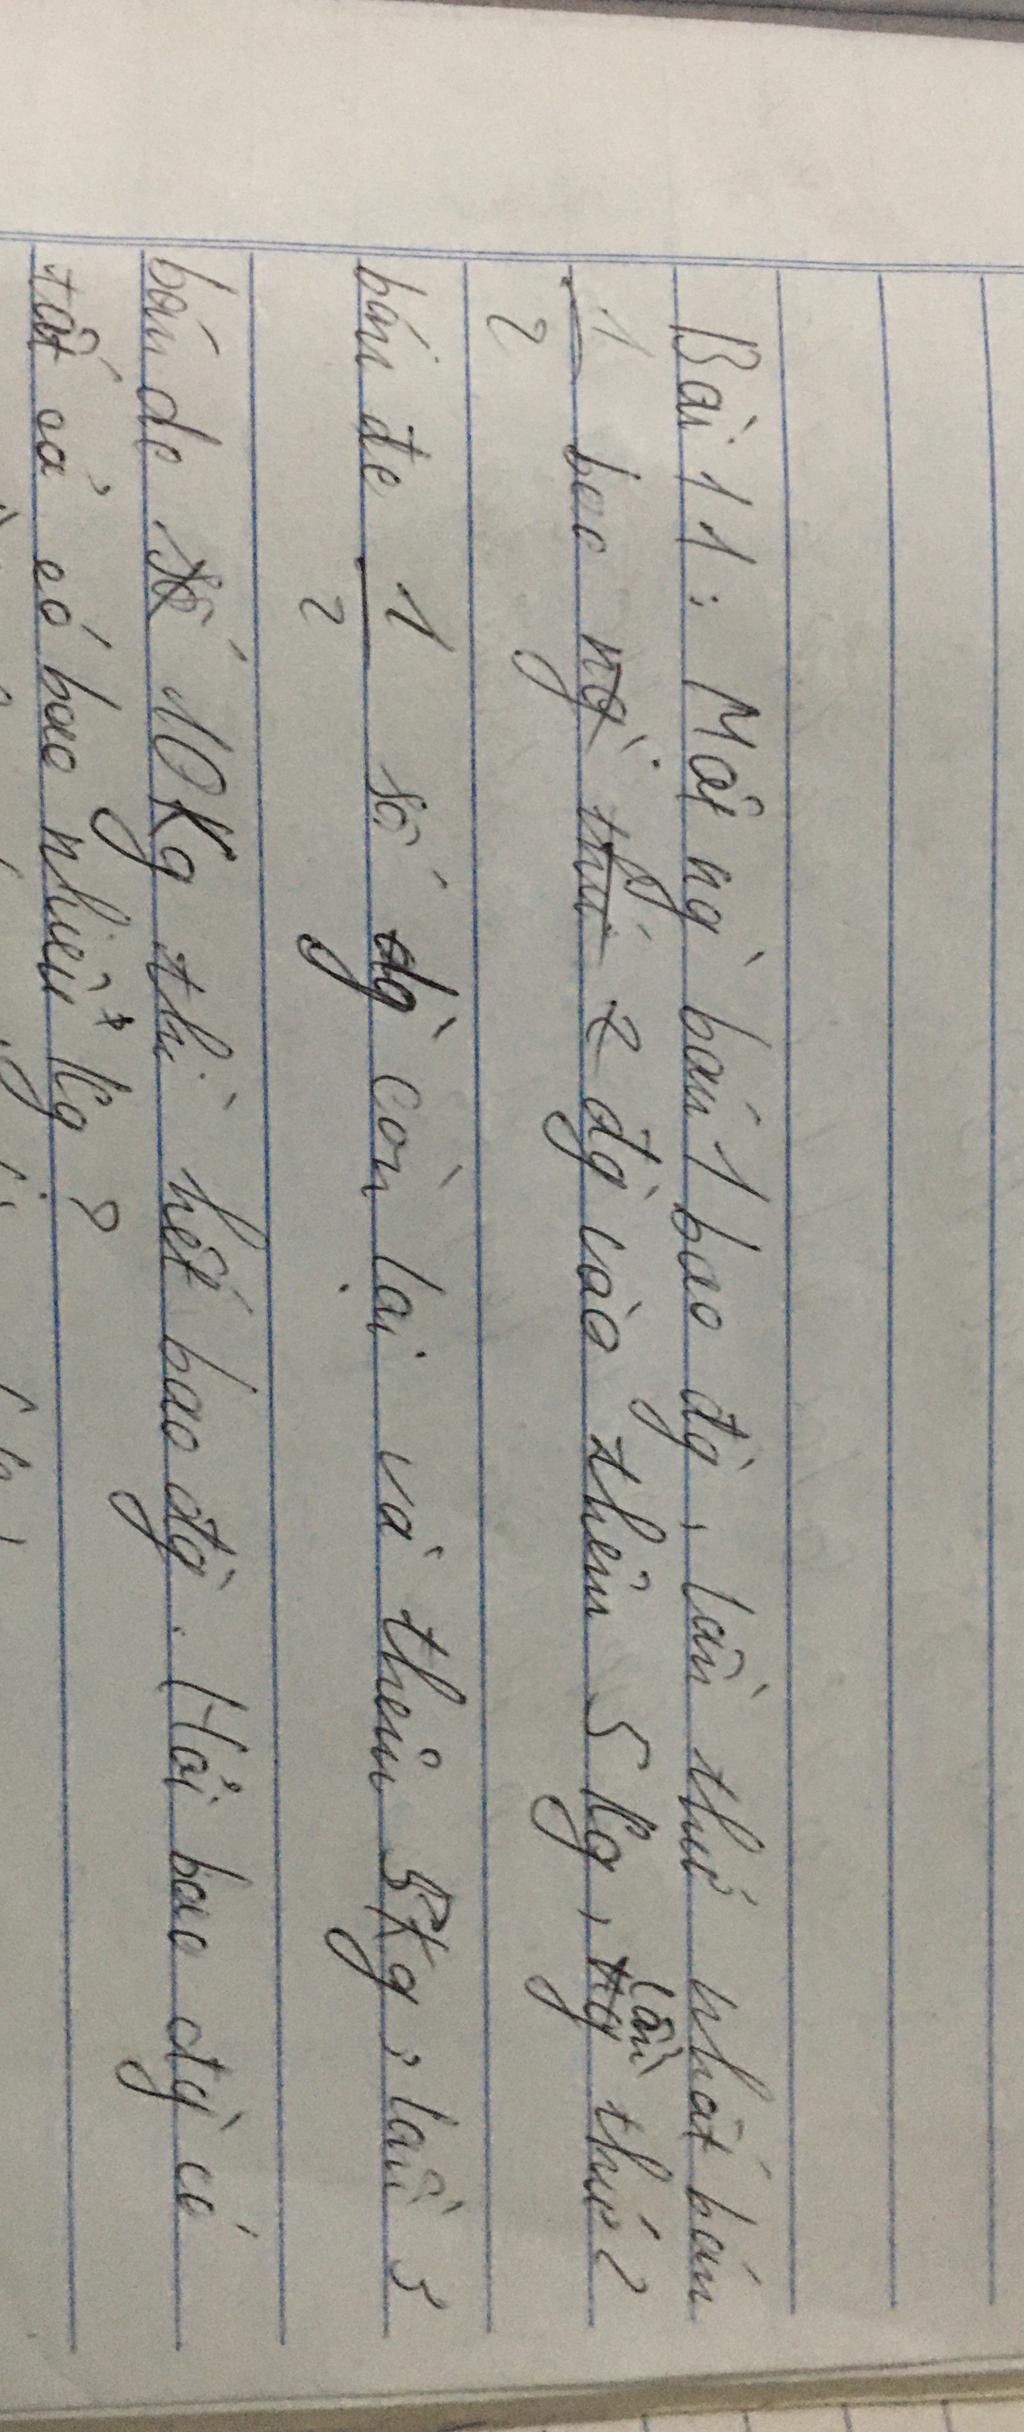 Bài 11: Một ng` bán 1 bao đg`, lần thứ nhất bán
1/2 bao đg` và thêm 5 kg, lần thứ 2
bán đc 1/2 số đg` còn lại và thêm 5kg, lần 3
bán đc 10Kg thì hết bao đg`. Hỏi bao đg` có
tất cả có bao nhiêu kg?